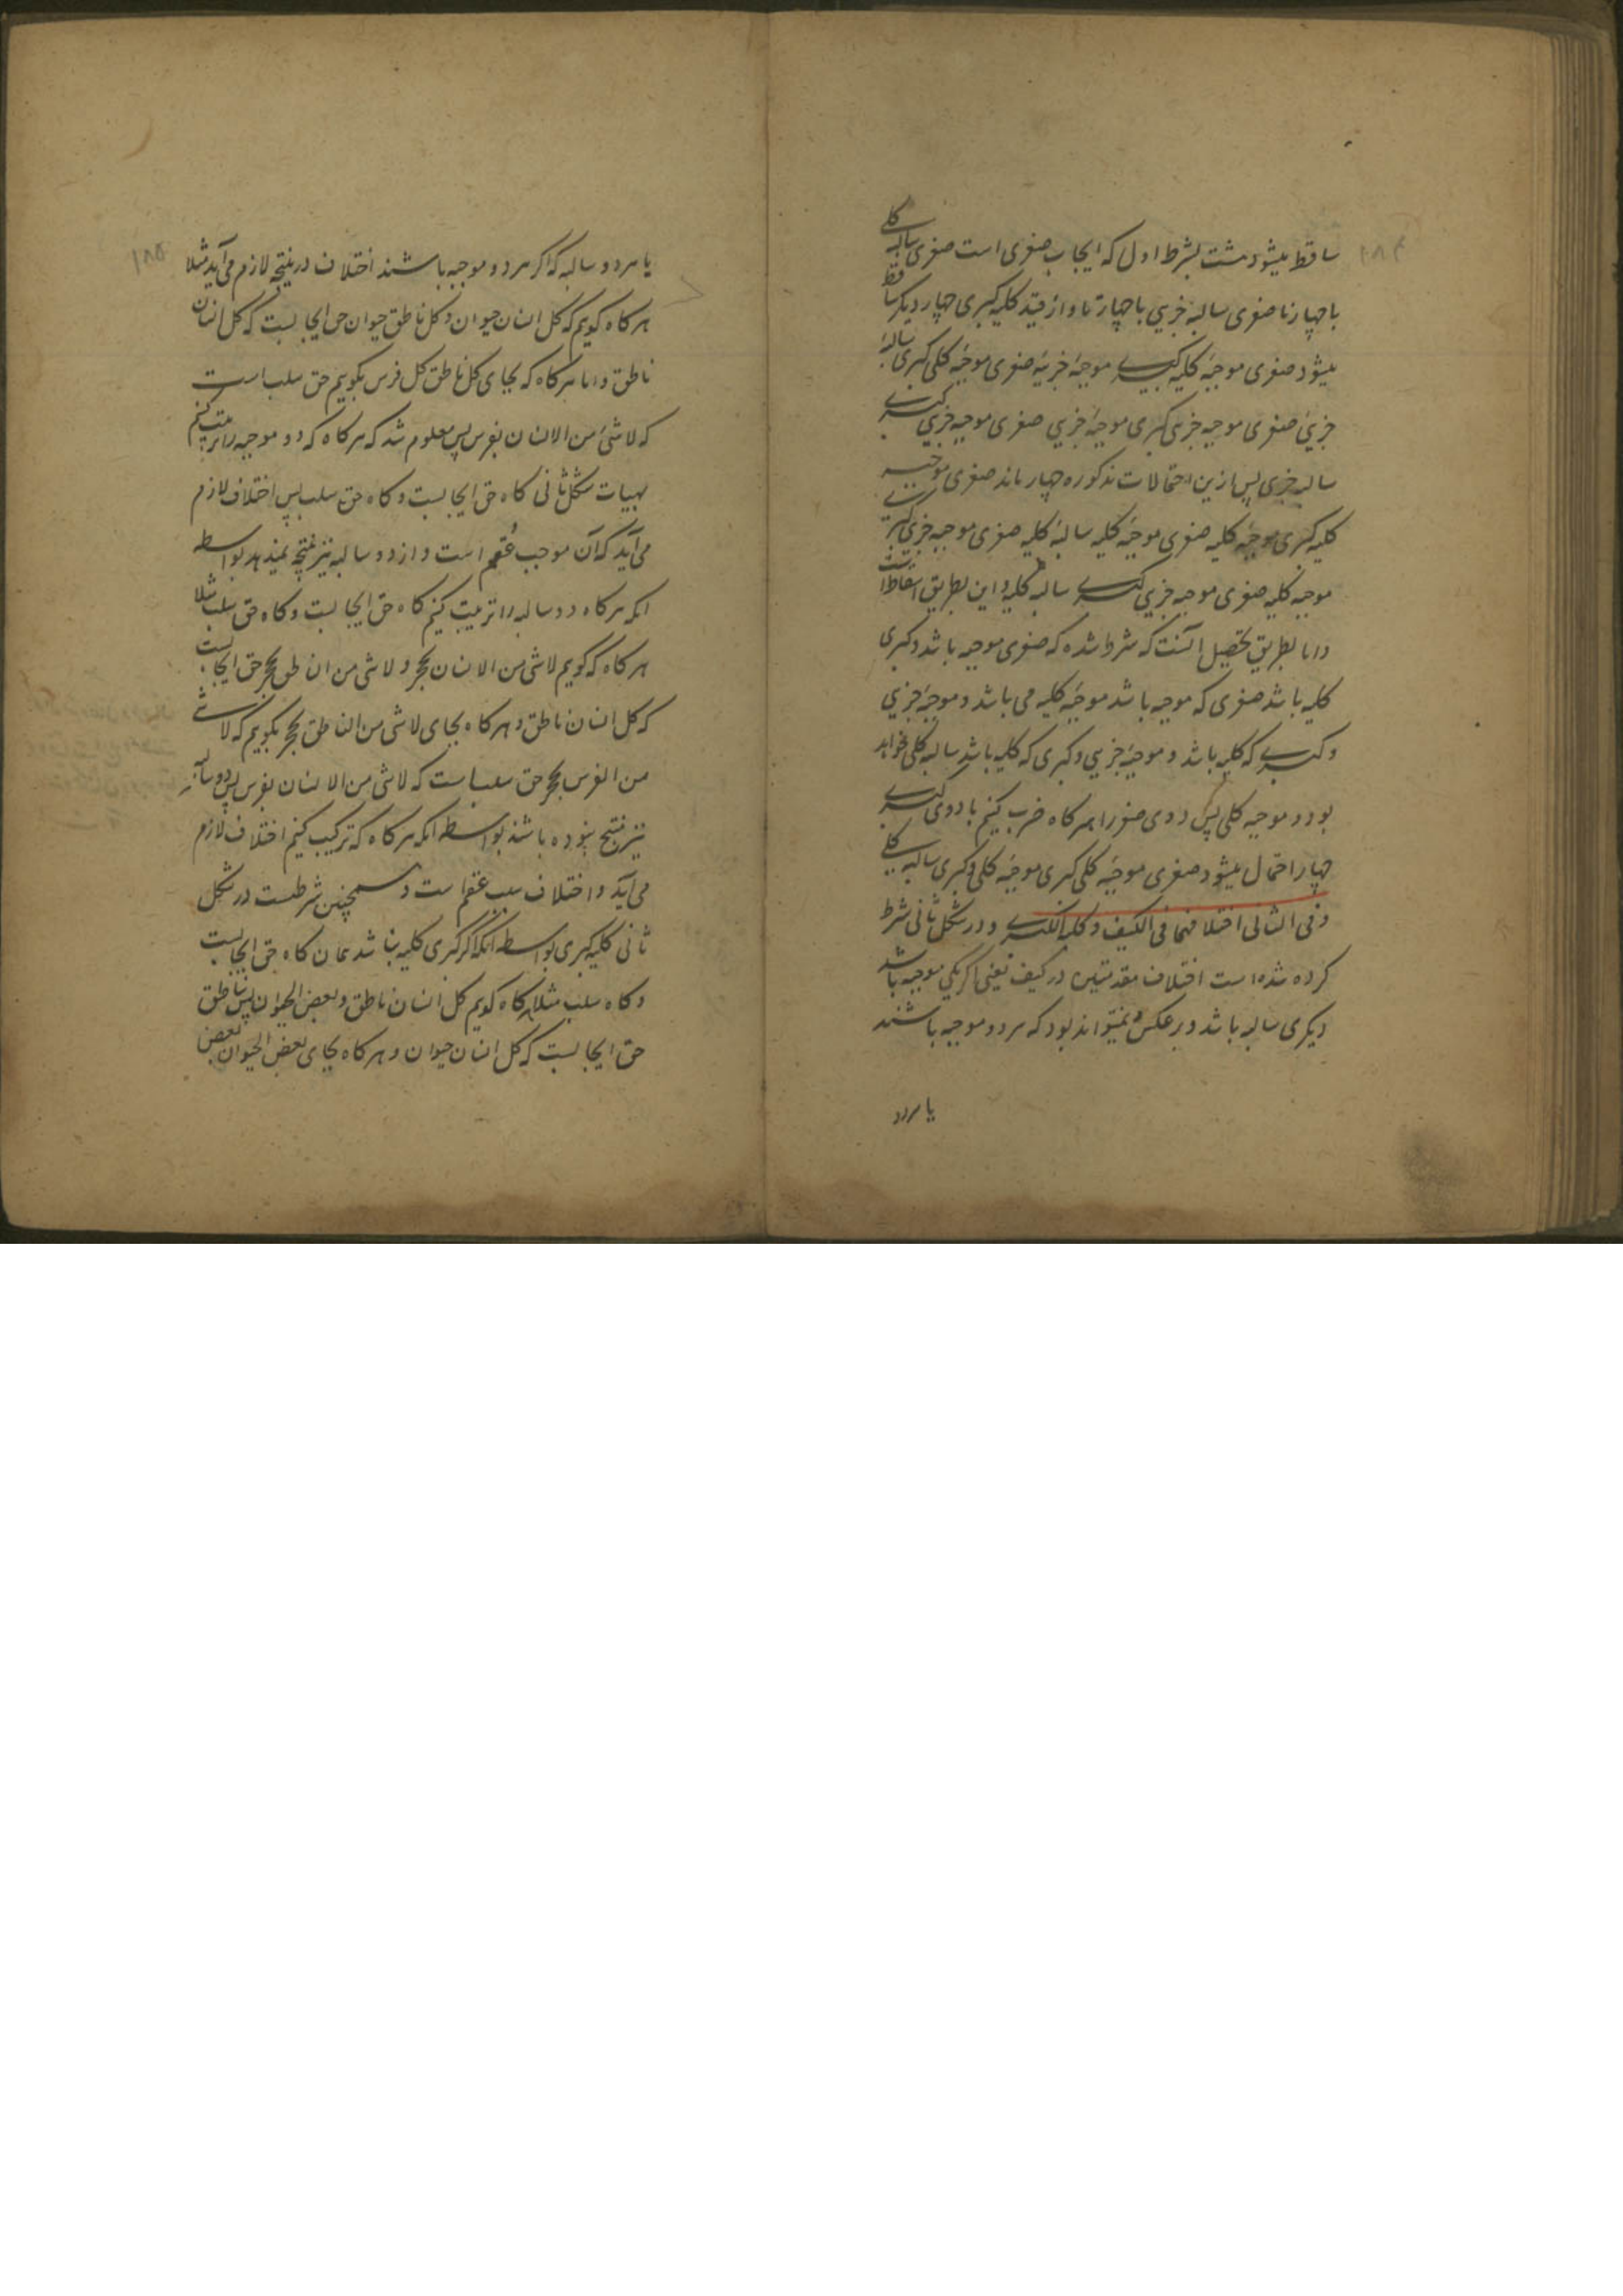 ساقط میشود هشت بشرط اول که ایجاب صغری است صغری سالبه کلی
با چهار تا صغری سالبه جزیی با چهار تا و از قید کلیه کبری چهار دیگر ساقط
میشود صغری موجبه کلیه کبری موجبه جزییه صغری موجبه کلی کبری سالبه
جزیی صغری موجبه جزی کبری موجبه جزیی صغری موجبه جزیی کبری
سالبه جزی پس ازین احتمالات مذکوره چهار ماند صغری موجبه
کلیه کبری موجبه کلیه صغری موجبه کلیه سالبه کلیه صغری موجبه جزی کبری
موجبه کلیه صغری موجبه جزیی کبری سالبه کلیه و این بطریق اسقاط است
و اما بطریق تحصیل آنست که شرط شده که صغری موجبه باشد و کبری
کلیه باشد صغری که موجبه باشد موجبه کلیه می باشد و موجبه جزیی
و کبری که کلیه باشد و موجبه جزیی و کبری که کلیه باشد سالبه کلی خواهد
بود و موجبه کلی پس دوی صغر را هرگاه ضرب کنیم با دوی کبری
چهار احتمال میشود صغری موجبه کلی کبری موجبه کلی و کبری سالبه کلی
و فی الثانی اختلافهما فی الکیف و کلیه الکبری و در شکل ثانی شرط
کرده شده است اختلاف مقدمتین در کیف یعنی اگر یکی موجبه باشد
دیگری سالبه باشد و برعکس و نمیتواند بود که هر دو موجبه باشند
یا هردو
۱۸۵
یا هر دو سالبه که اگر هر دو موجبه باشند اختلاف در نتیجه لازم می آید مثلا
هرگاه گویم که کل انسان حیوان و کل ناطق حیوان حق ایجابست که کل انسان
ناطق و اما هرگاه که بجای کل ناطق کل فرس بگوییم حق سلب است
که لاشئ من الانسان بفرس پس معلوم شد که هرگاه که دو موجبه را ترتیب کنیم
بهیات شکل ثانی گاه حق ایجابست و گاه حق سلب پس اختلاف لازم
می آید که آن موجب عقم است و از دو سالبه نیز نتیجه نمیدهد بواسطه
انکه هرگاه دو سالبه را ترتیب کنیم گاه حق ایجابست و گاه حق سلب مثلا
هرگاه که گویم لاشی من الانسان بحجر و لاشی من الناطق بحجر حق ایجابست
که کل انسان ناطق و هرگاه بجای لاشی من الناطق بحجر بگوییم که لاشی
من الفرس بحجر حق سلب است که لاشی من الانسان بفرس پس دو سالبه
نیز منتج نبوده باشند بواسطه انکه هرگاه که ترکیب کنیم اختلاف لازم
می آید و اختلاف سبب عقم است و همچنین شرطست در شکل
ثانی کلیه کبری بواسطه انکه اگر کبری کلیه نباشد همان گاه حق ایجابست
و گاه سلب مثلا هرگاه گویم کل انسان ناطق و بعض الحیوان لیس بناطق
حق ایجابست که کل انسان حیوان و هرگاه بجای بعض الحیوان بعض